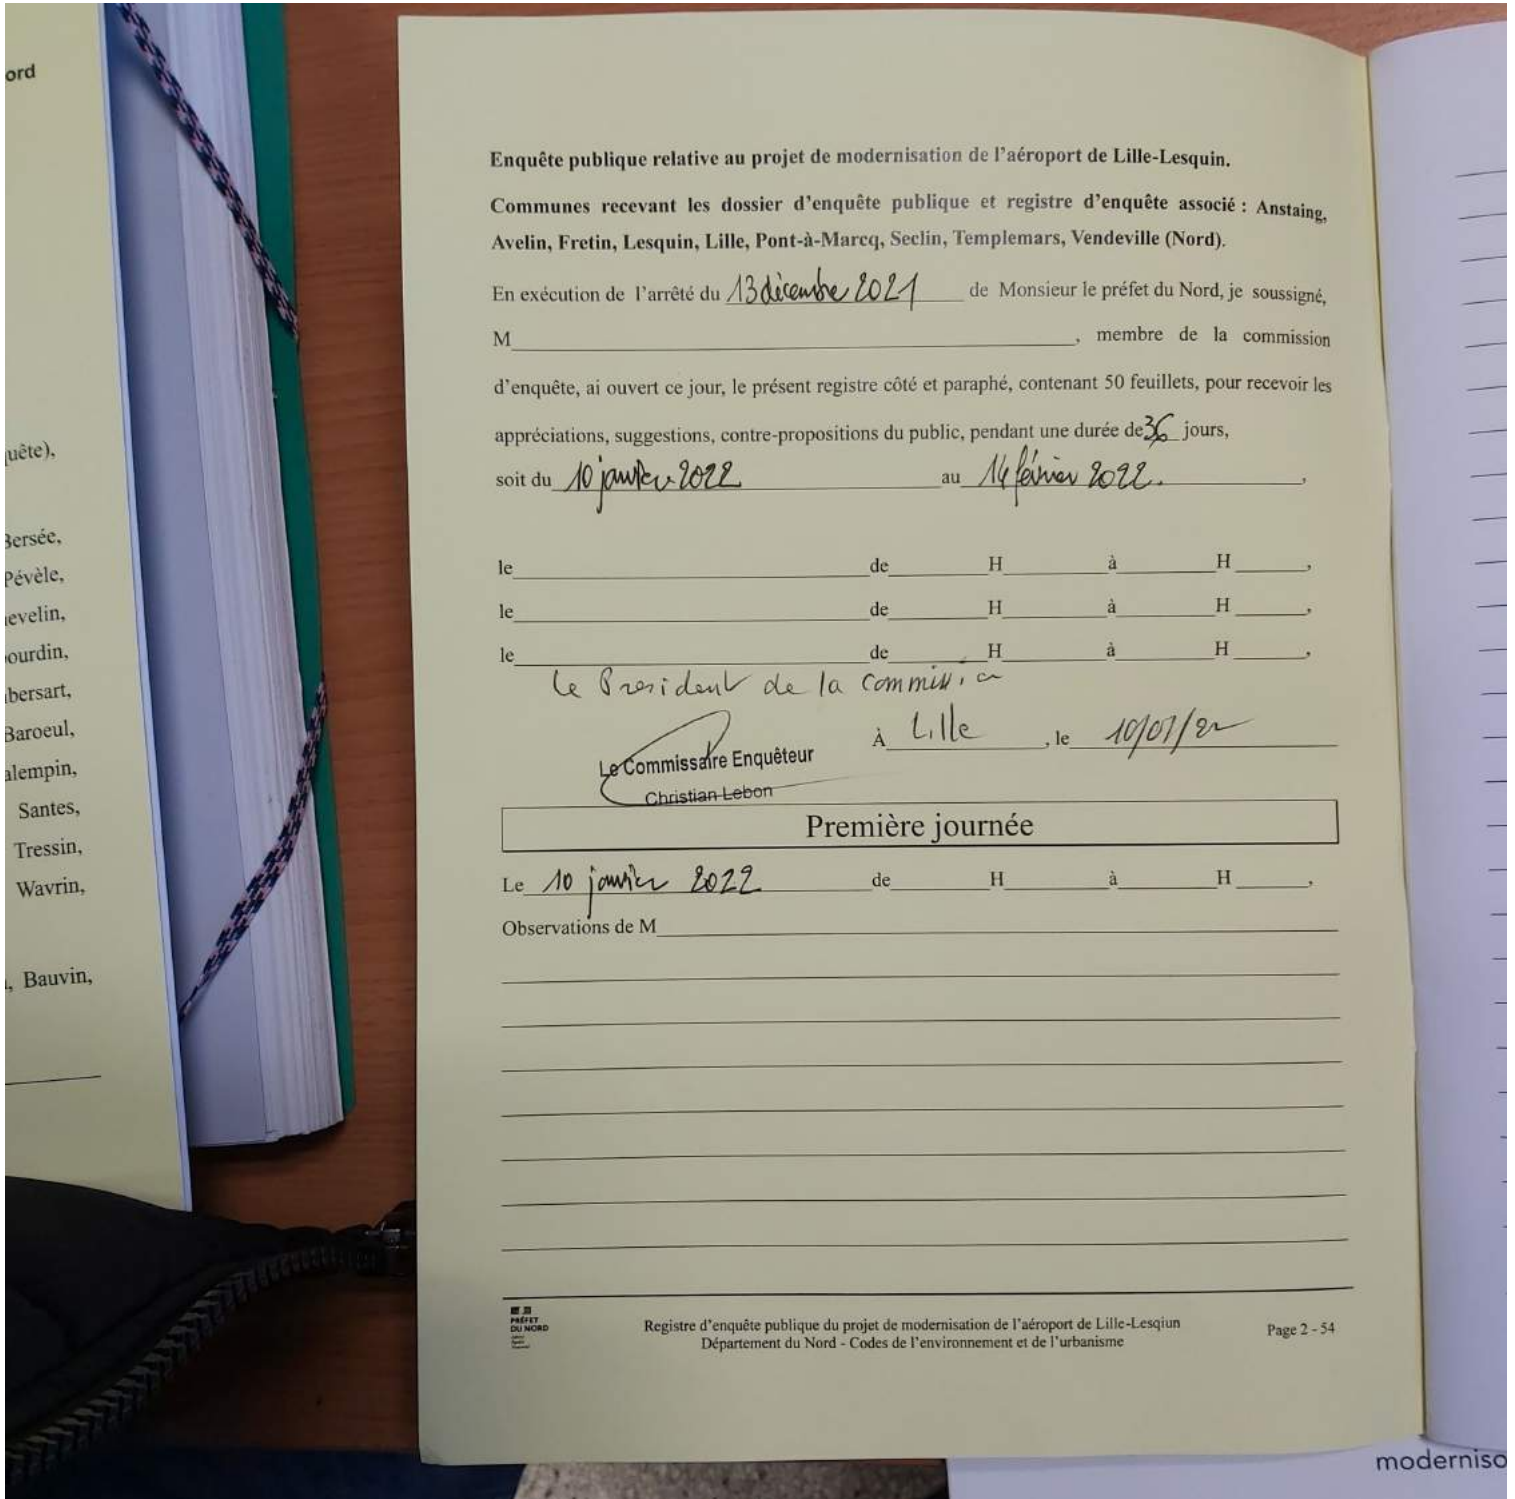 ord
uête),
Bersée,
Pévèle,
evelin,
ourdin,
bersart,
Baroeul,
alempin,
Santes,
Tressin,
Wavrin,
, Bauvin,
Enquête publique relative au projet de modernisation de l'aéroport de Lille-Lesquin.
Communes recevant les dossier d'enquête publique et registre d'enquête associé : Anstaing,
Avelin, Fretin, Lesquin, Lille, Pont-à-Marcq, Seclin, Templemars, Vendeville (Nord).
En exécution de l'arrêté du 13 décembre 2021 de Monsieur le préfet du Nord, je soussigné,
M , membre de la commission
d'enquête, ai ouvert ce jour, le présent registre côté et paraphé, contenant 50 feuillets, pour recevoir les
appréciations, suggestions, contre-propositions du public, pendant une durée de 36 jours,
soit du 10 janvier 2022 au 14 février 2022. ,
le de H à H ,
le de H à H ,
le de H à H ,
Le President de la commission
À Lille , le 10/01/22
Le Commissaire Enquêteur
Christian Lebon
Première journée
Le 10 janvier 2022 de H à H ,
Observations de M
PRÉFET
DU NORD
Registre d'enquête publique du projet de modernisation de l'aéroport de Lille-Lesqiun
Département du Nord - Codes de l'environnement et de l'urbanisme
Page 2 - 54
moderniso